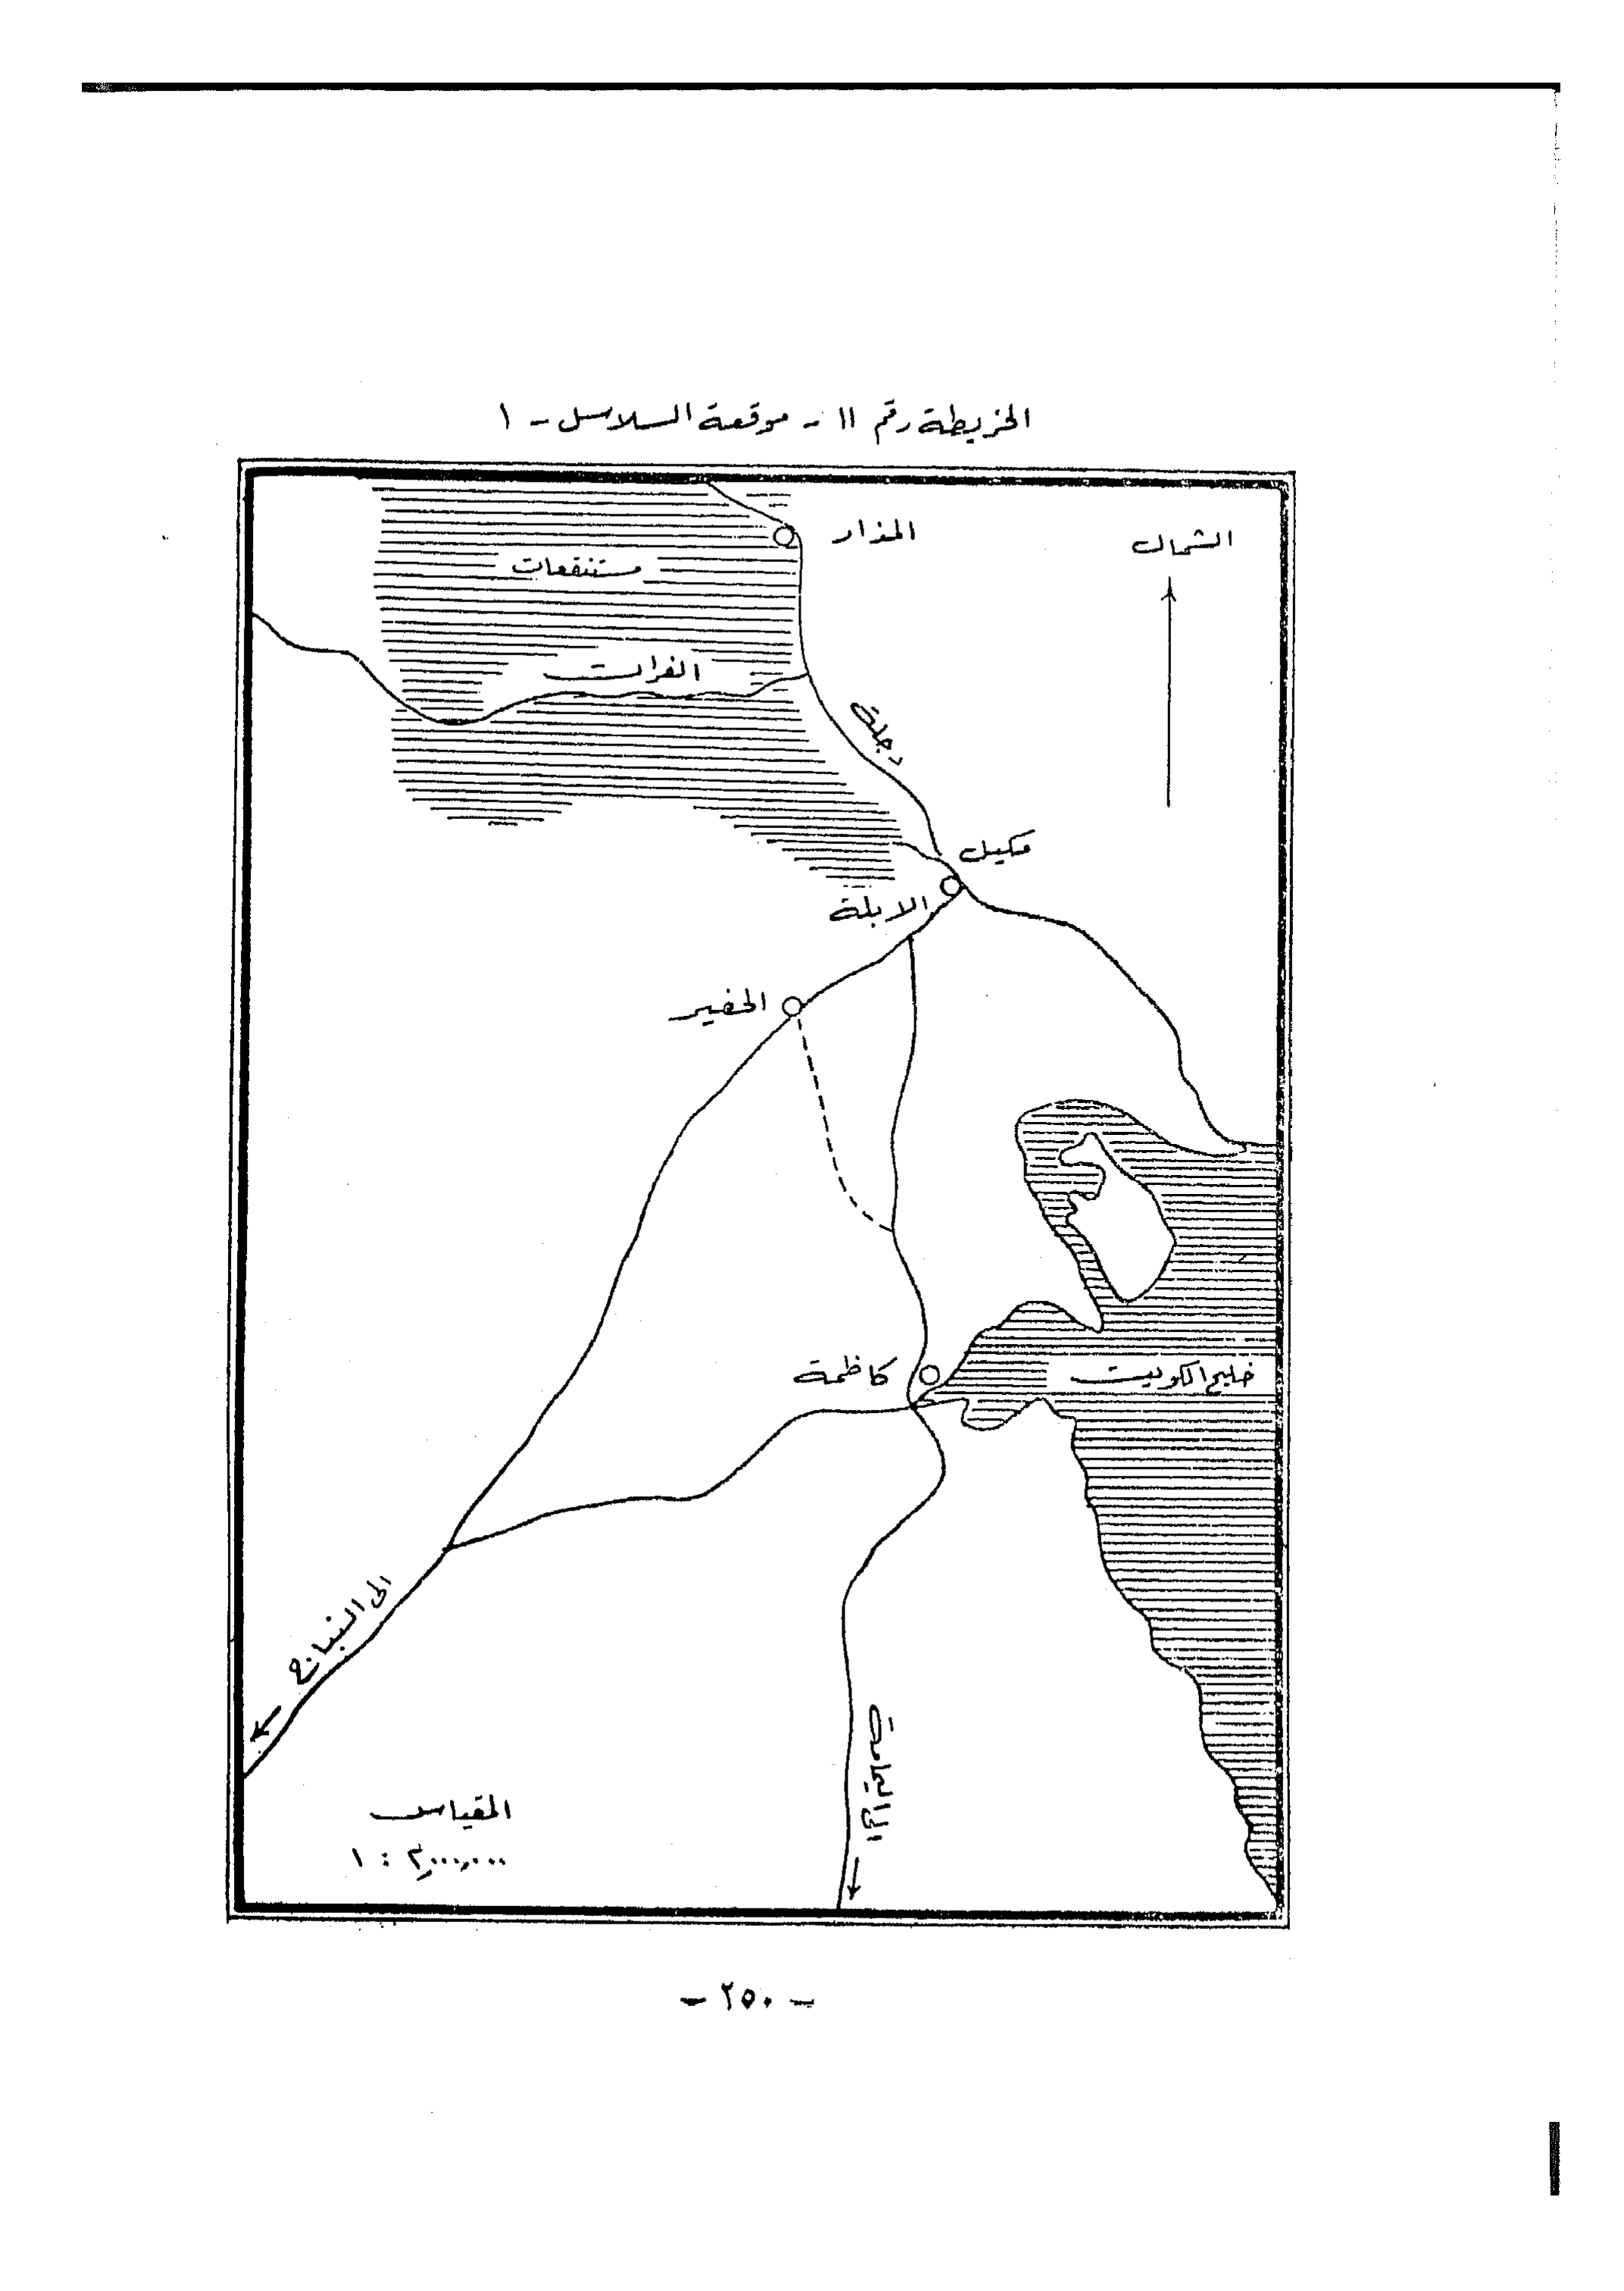 الخريطة رقم ١١ - موقعة السلاسل - ١
الشمال
المذار
مستنقعات
الفرات
دجلة
مكيل
الابلة
الحفير
كاظمة
خليج الكويت
الى النباج
المقياس
١ : ٢,٠٠٠,٠٠٠
- ٢٥٠ -